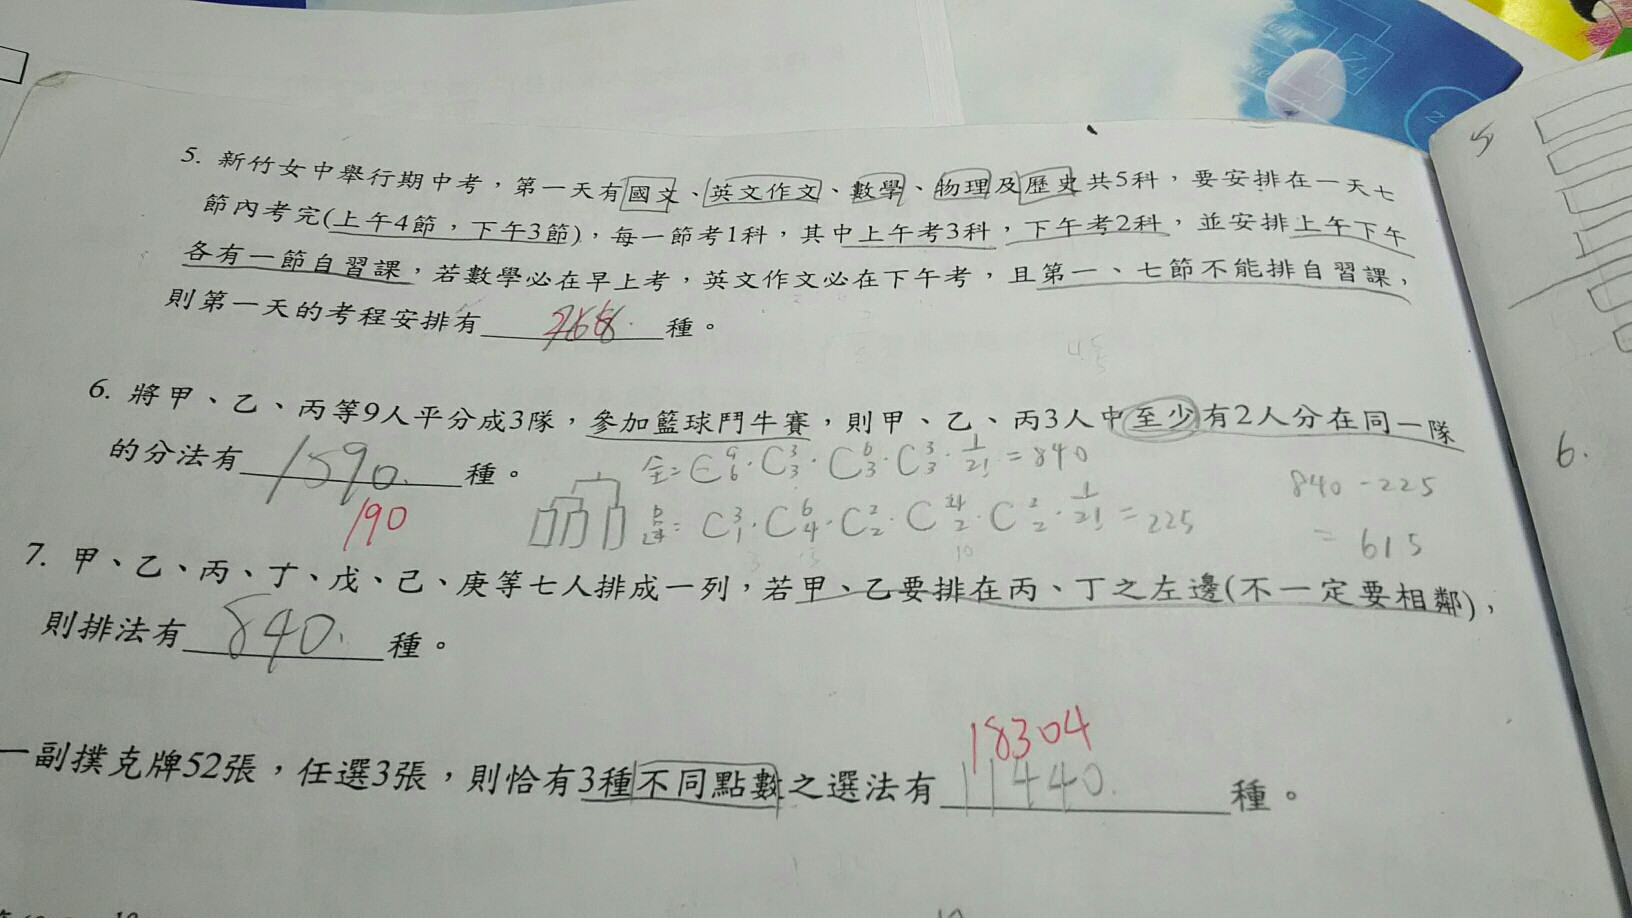 5. 新竹女中舉行期中考，第一天有國文、英文作文、數學、物理及歷史共5科，要安排在一天七
節內考完(上午4節，下午3節)，每一節考1科，其中上午考3科，下午考2科，並安排上午下午
各有一節自習課，若數學必在早上考，英文作文必在下午考，且第一、七節不能排自習課，
則第一天的考程安排有 種。
6. 將甲、乙、丙等9人平分成3隊，參加籃球鬥牛賽，則甲、乙、丙3人中至少有2人分在同一隊
的分法有 1590. 種。
190
全= C⁹₆·C³₃·C⁶₃·C³₃·1/2! = 840
= C³₁·C⁶₄·C²₂·C⁴₂·C²₂·1/2! = 225
840-225
= 615
7. 甲、乙、丙、丁、戊、己、庚等七人排成一列，若甲、乙要排在丙、丁之左邊(不一定要相鄰)，
則排法有 840. 種。
18304
一副撲克牌52張，任選3張，則恰有3種不同點數之選法有 11440. 種。
5
6.